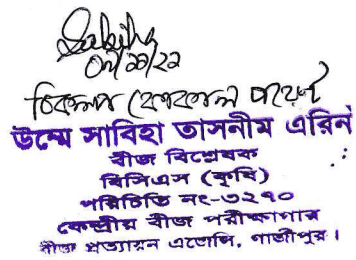 ০৮/১১/২২
বিকল্প ফোকাল পয়েন্ট
উম্মে সাবিহা তাসনীম এরিন
বীজ বিশ্লেষক
বিসিএস (কৃষি)
পরিচিতি নং-৩২৭০
কেন্দ্রীয় বীজ পরীক্ষাগার
বীজ প্রত্যয়ন এজেন্সি, গাজীপুর।